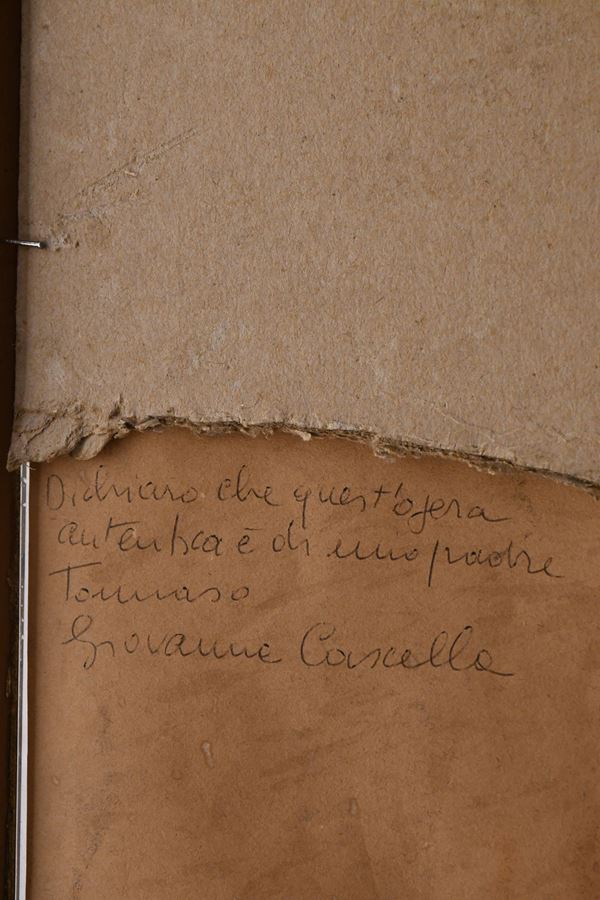 Dichiaro che quest'opera
autentica è di mio padre
Tommaso
Giovanna Cascella